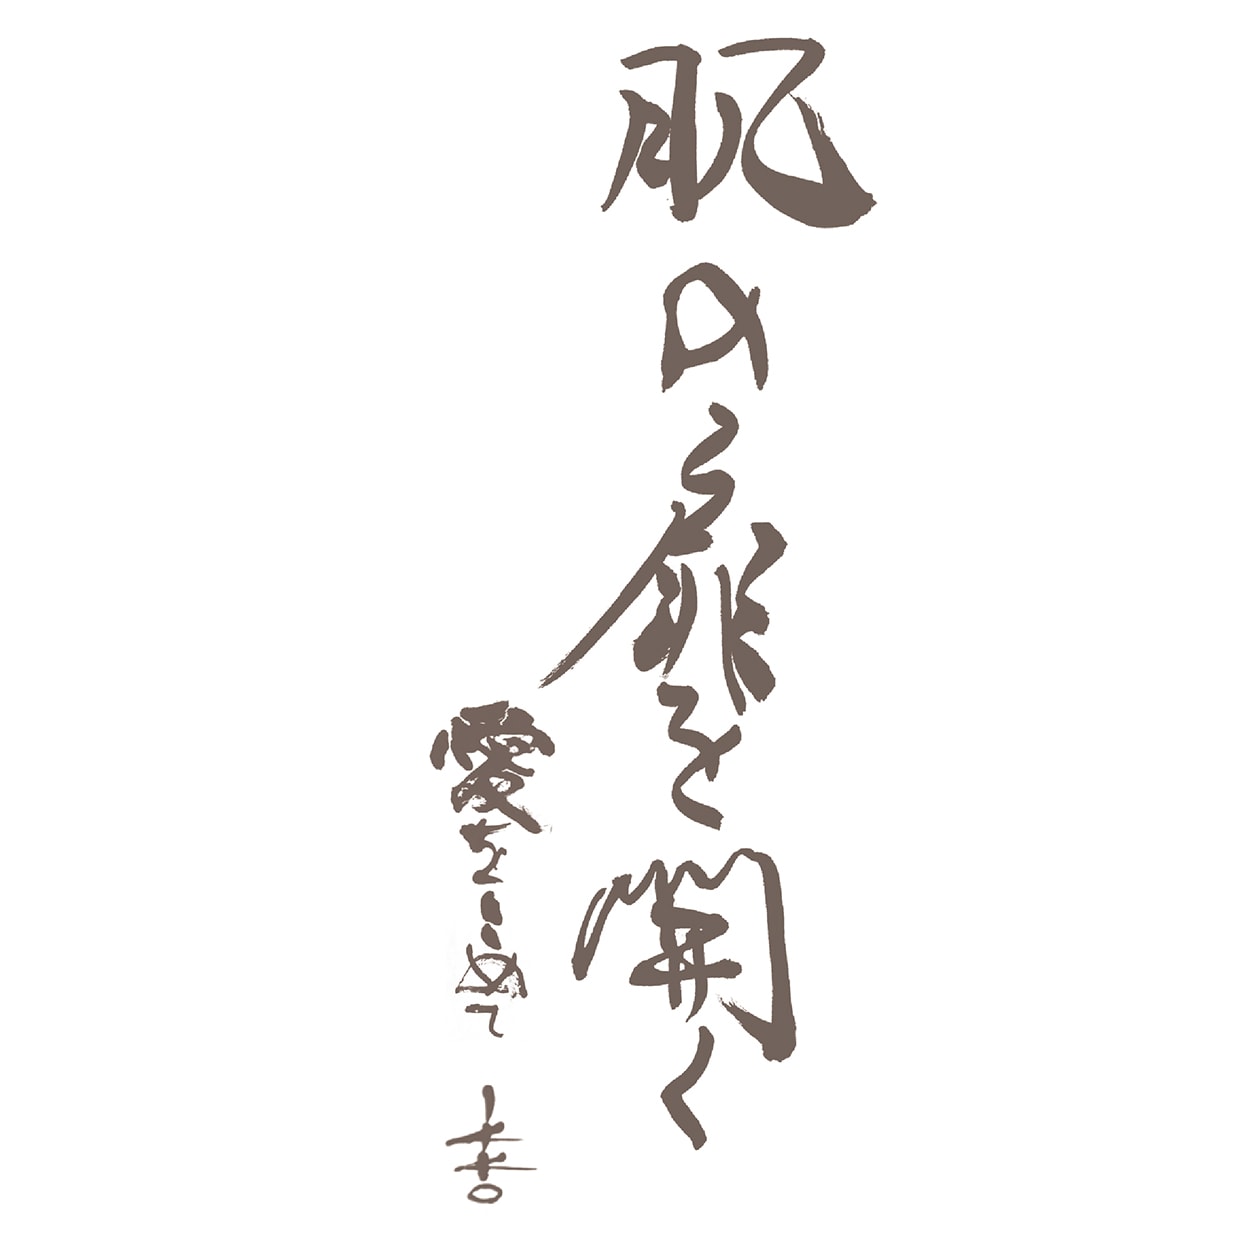 肌の扉を開く
愛をこめて